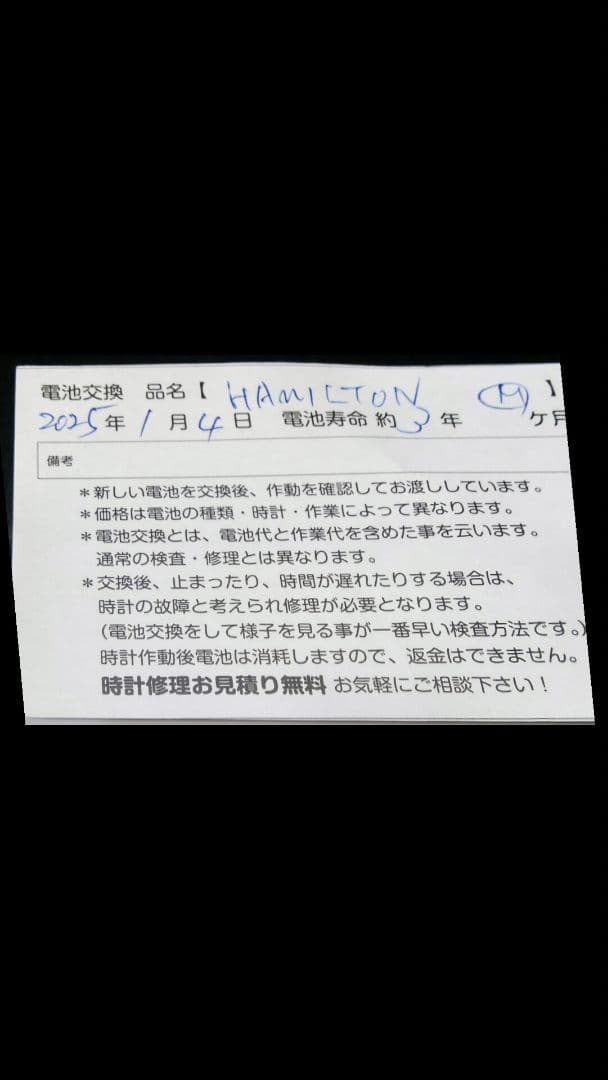 電池交換 品名【 HAMILTON Ⓜ 】
2025年 1月 4日 電池寿命 約 3 年 ケ月
備考
＊新しい電池を交換後、作動を確認してお渡ししています。
＊価格は電池の種類・時計・作業によって異なります。
＊電池交換とは、電池代と作業代を含めた事を云います。
通常の検査・修理とは異なります。
＊交換後、止まったり、時間が遅れたりする場合は、
時計の故障と考えられ修理が必要となります。
（電池交換をして様子を見る事が一番早い検査方法です。）
時計作動後電池は消耗しますので、返金はできません。
時計修理お見積り無料 お気軽にご相談下さい！